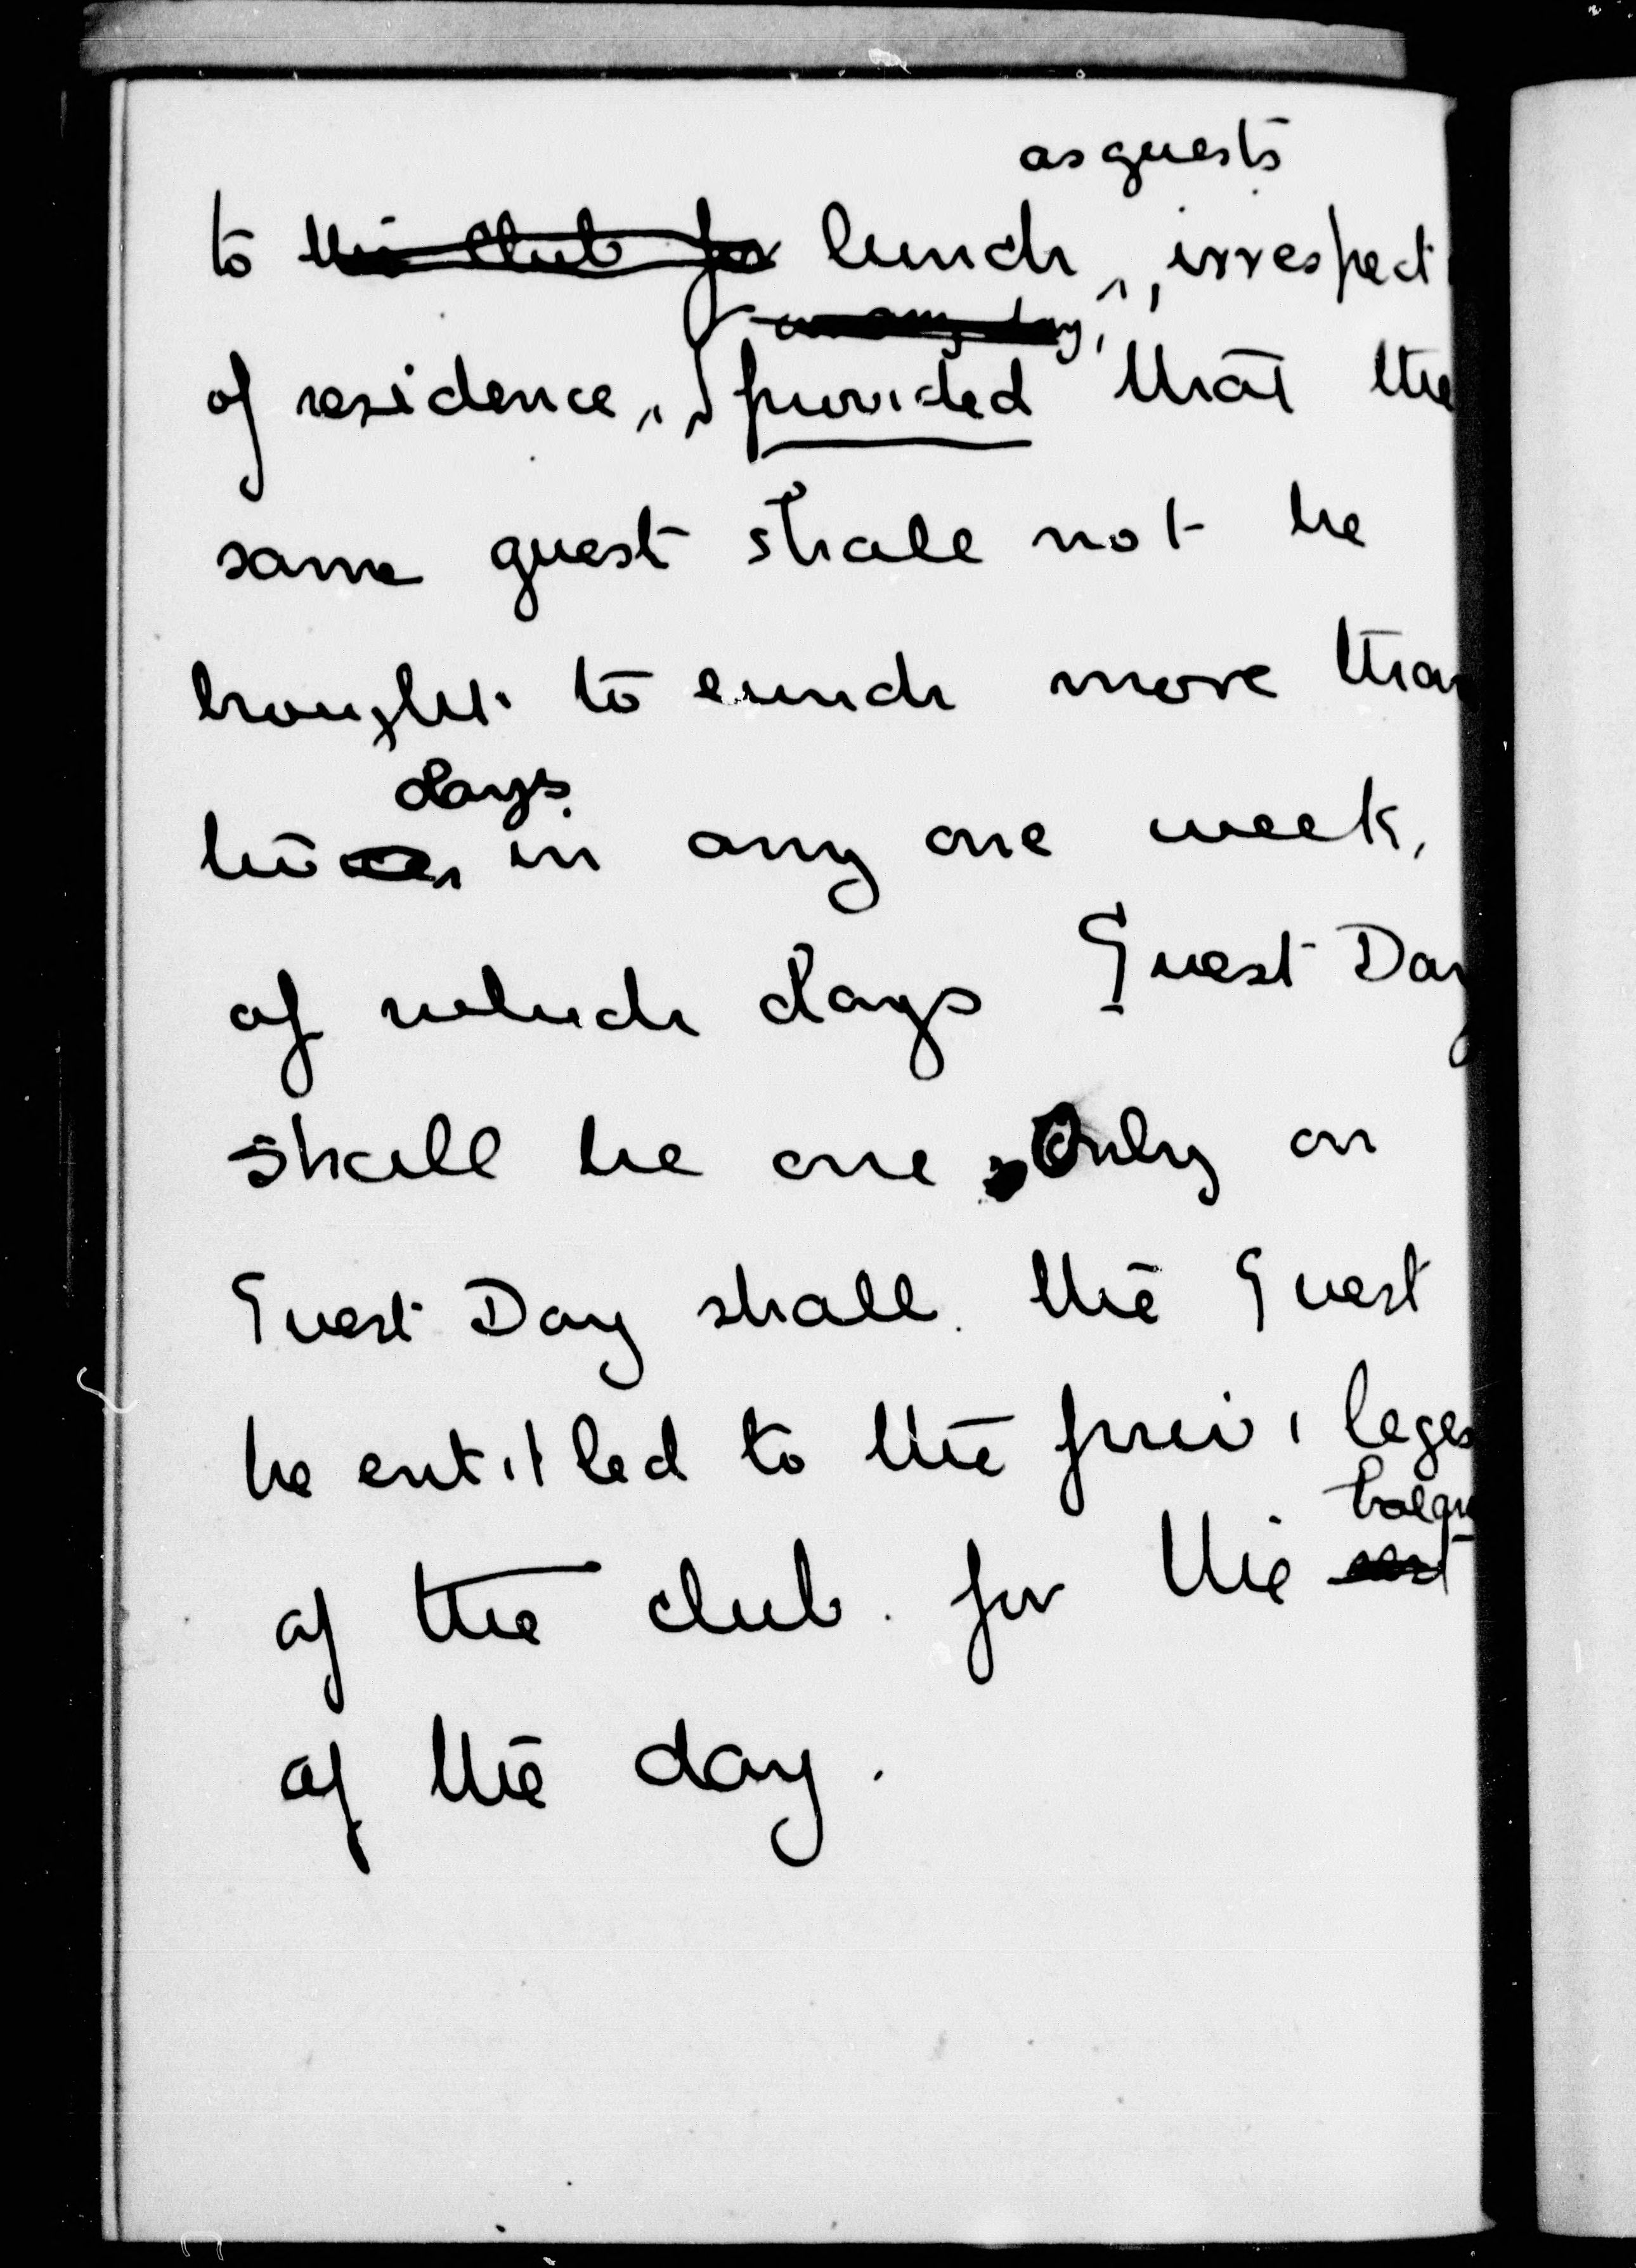 as guests
to the club for lunch, irrespect
on any day,
of residence, provided that the
same guest shall not be
brought to lunch more than
days
two in any one week,
of which days Guest Day
shall be one. Only on
Guest Day shall the Guest
be entitled to the privileges
of the club for the
of the day.